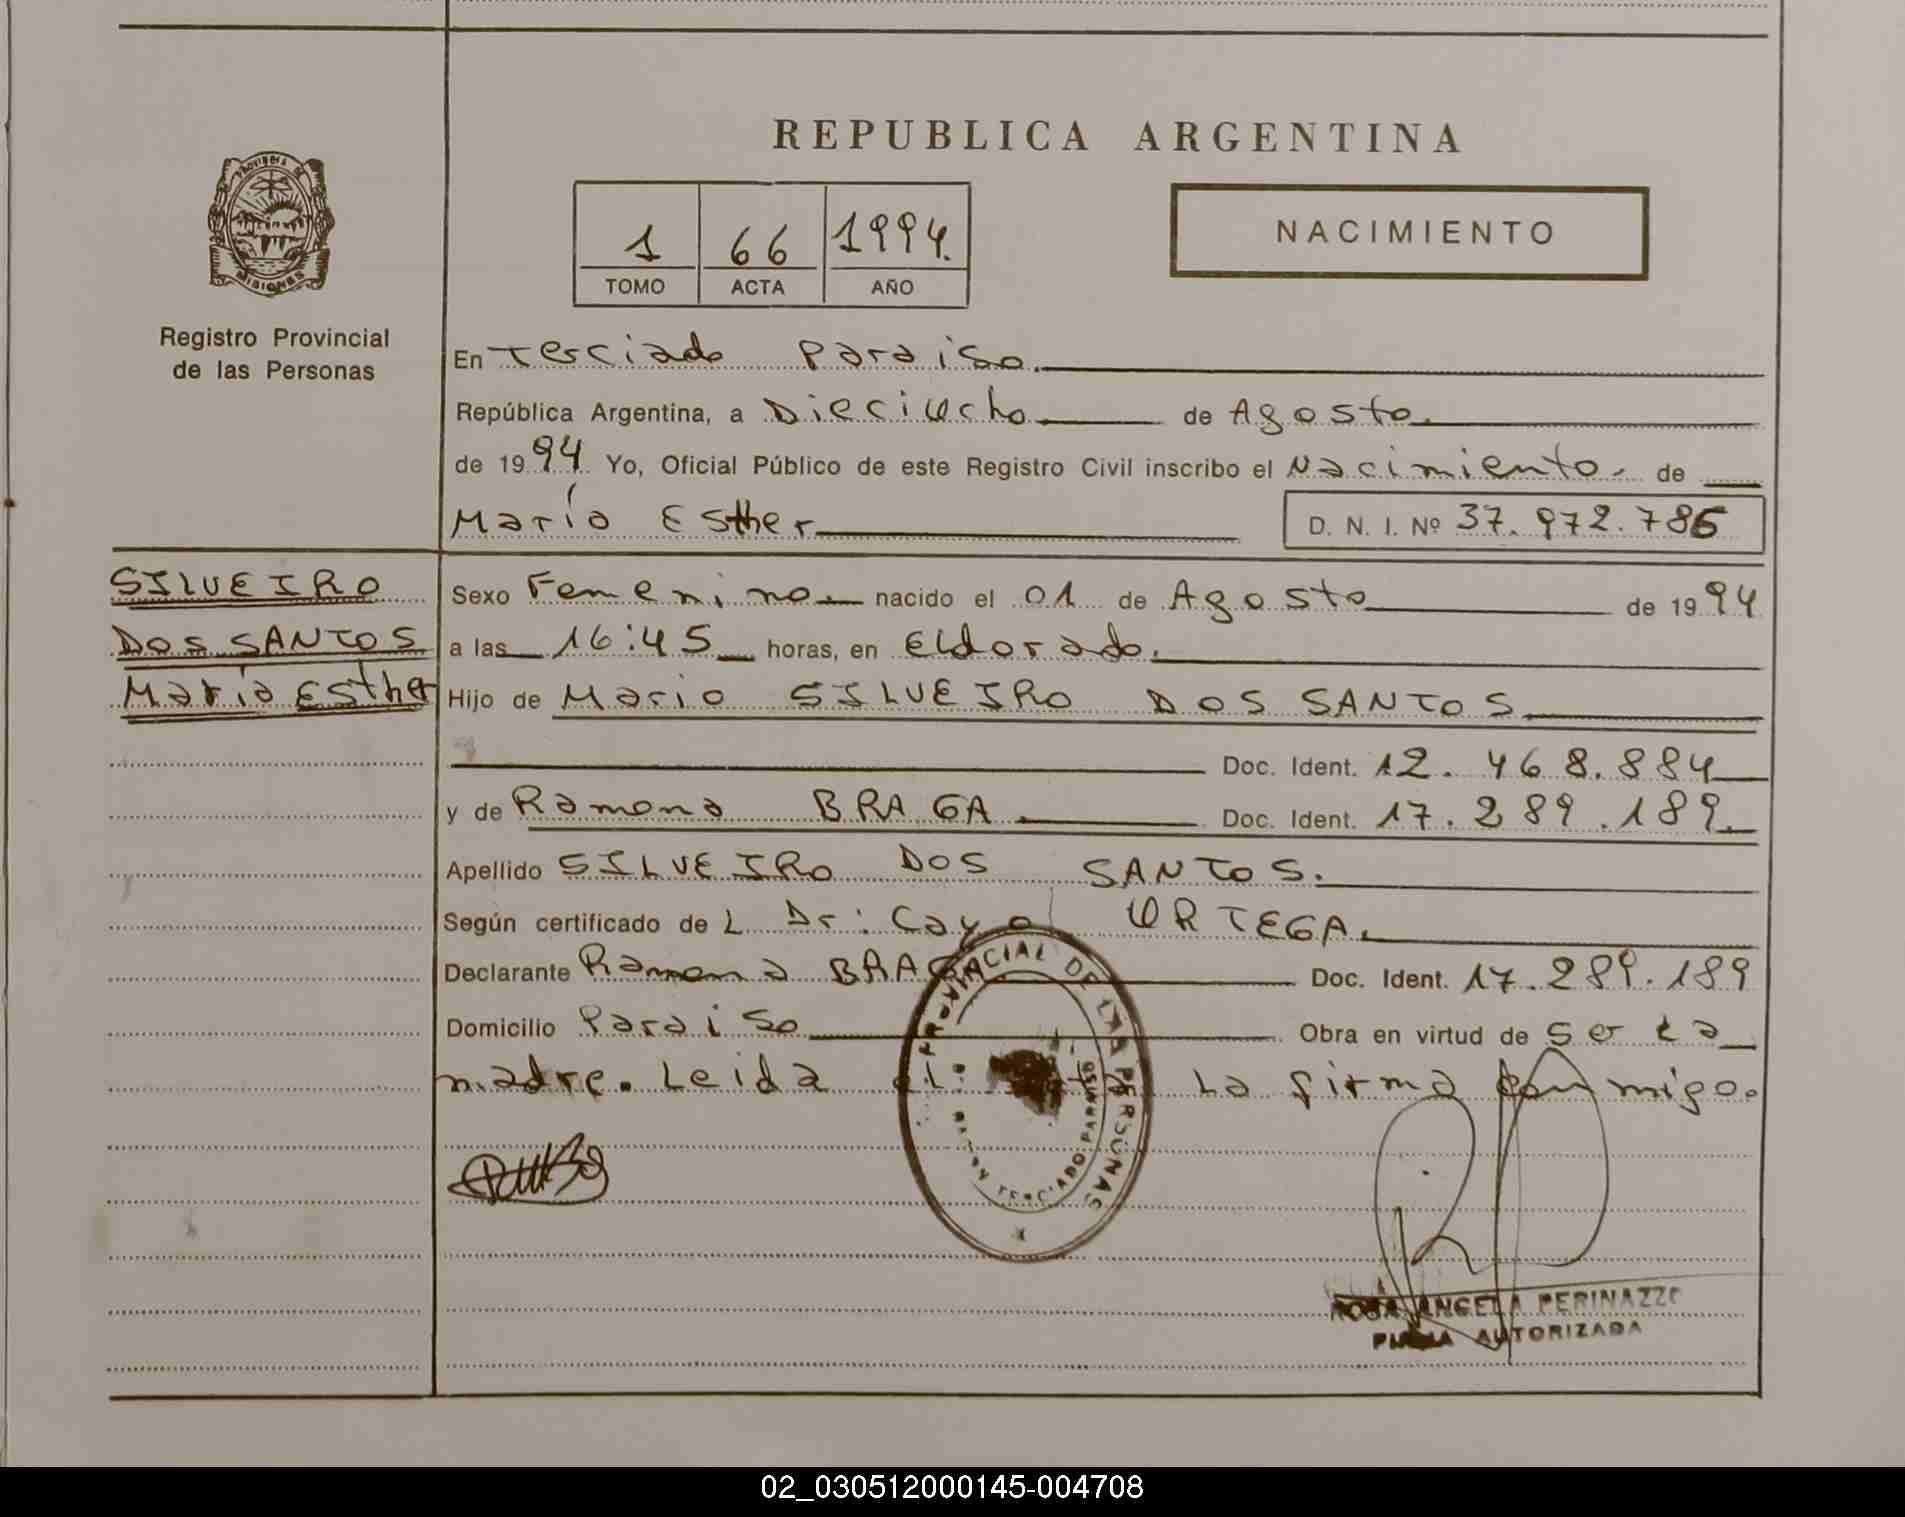 REPUBLICA ARGENTINA
PROVINCIA DE
MISIONES
Registro Provincial
de las Personas
1 66 1994.
TOMO ACTA AÑO
NACIMIENTO
En Terciado Paraiso.
República Argentina, a Dieciocho de Agosto.
de 1994 Yo, Oficial Público de este Registro Civil inscribo el Nacimiento. de
María Esther D. N. I. Nº 37.972.786
SILVEIRO
DOS SANTOS
María Esther
Sexo Femenino. nacido el 01 de Agosto de 1994
a las 16:45 horas, en Eldorado.
Hijo de Mario SILVEIRO DOS SANTOS
Doc. Ident. 12.468.884
y de Ramona BRAGA Doc. Ident. 17.289.189.
Apellido SILVEIRO DOS SANTOS.
Según certificado de L Dr: Cayo ORTEGA.
Declarante Ramona BRAGA Doc. Ident. 17.289.189
Domicilio Paraiso Obra en virtud de ser La
madre. Leida el La firma conmigo.
PROVINCIAL DE LAS PERSONAS
TERCIADO PARAISO
ROSA ANGELA PERINAZZO
FIRMA AUTORIZADA
02_030512000145-004708